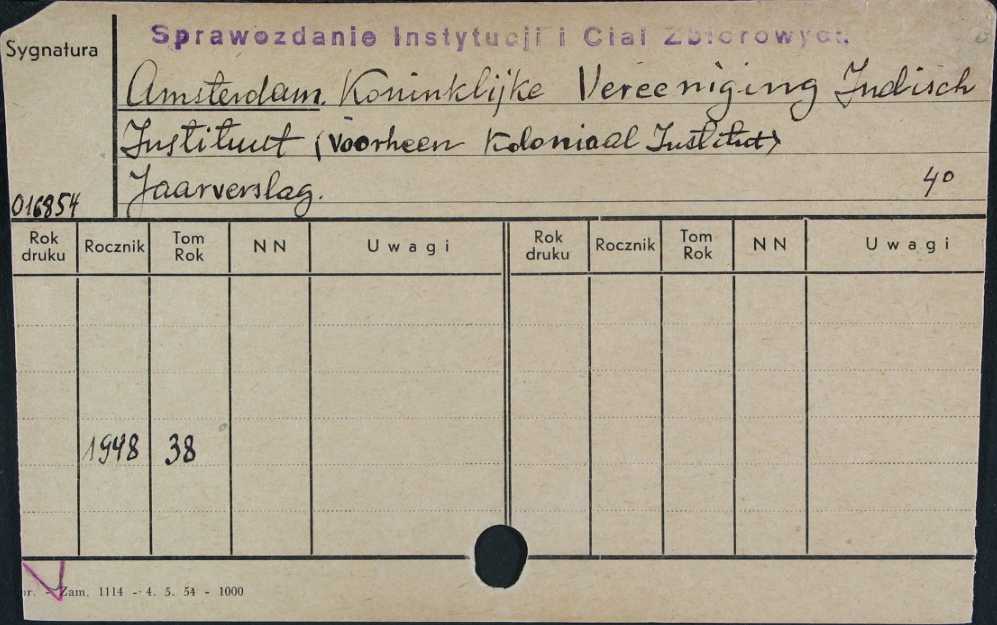 Sprawozdanie Instytucji i Ciał Zbiorowych.
Sygnatura
Amsterdam. Koninklijke Vereeniging Indisch
Instituut (Voorheen Koloniaal Instituut)
Jaarverslag. 4°
016854
Rok druku Rocznik Tom Rok NN Uwagi Rok druku Rocznik Tom Rok NN Uwagi
1948 38
Zam. 1114 - 4. 5. 54 - 1000